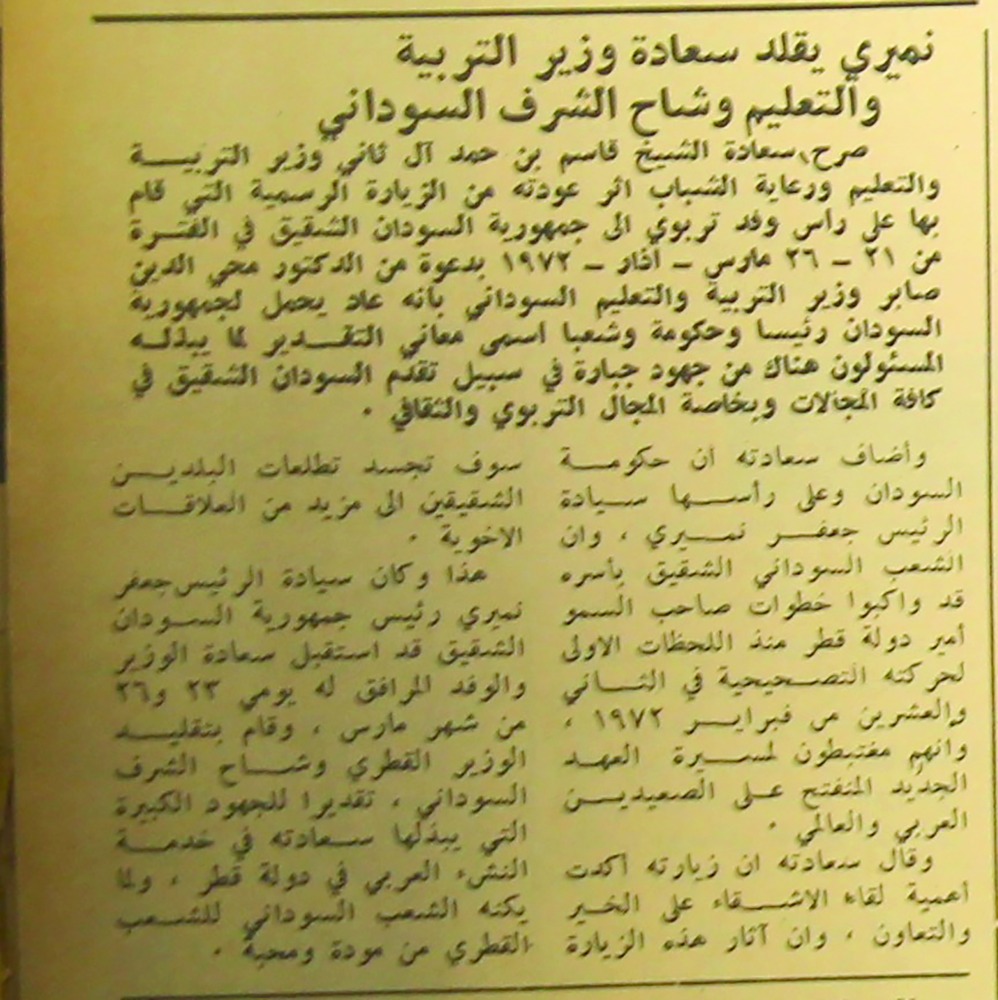 نميري يقلد سعادة وزير التربية
والتعليم وشاح الشرف السوداني
صرح سعادة الشيخ قاسم بن حمد آل ثاني وزير التربيــة
والتعليم ورعاية الشباب اثر عودته من الزيارة الرسمية التي قام
بها على رأس وفد تربوي الى جمهورية السودان الشقيق في الفتـرة
من ٢١ – ٢٦ مارس – آذار – ١٩٧٢ بدعوة من الدكتور محي الدين
صابر وزير التربية والتعليم السوداني بأنه عاد يحمل لجمهورية
السودان رئيسا وحكومة وشعبا اسمى معاني التقـــدير لما يبذلـه
المسئولون هناك من جهود جبارة في سبيل تقدم السودان الشقيق في
كافة المجالات وبخاصة المجال التربوي والثقافي .
وأضاف سعادته ان حكومـــة
السودان وعلى رأســـها سيـادة
الرئيس جعفـــر نمـيري ، وان
الشعب السوداني الشقيق بأسره
قد واكبوا خطوات صاحب السمو
أمير دولة قطر منذ اللحظات الاولى
لحركته التصــحيحية في الثــاني
والعشرين من فبرايـــر ١٩٧٢ ،
وانهم مغتبطون لمسـيرة العهـد
الجديد المنفتح علــى الصعيديــن
العربي والعالمي .
وقال سعادته ان زيارته أكدت
أهمية لقاء الاشــقاء على الخـير
والتعاون ، وان آثار هذه الزيارة
سوف تجسد تطلعات البلديــن
الشقيقين الى مزيد من العلاقــات
الاخوية .
هذا وكان سيادة الرئيس جعفر
نميري رئيس جمهورية الســودان
الشقيق قد استقبل سعادة الوزير
والوفد المرافق له يومي ٢٣ و٢٦
من شهر مارس ، وقام بتقليـــد
الوزير القطري وشـــاح الشرف
السوداني ، تقديرا للجهود الكبيرة
التي يبذلها ســعادته في خدمــة
النشء العربي في دولة قطر ، ولما
يكنه الشعب السوداني للشــعب
القطري من مودة ومحبة .